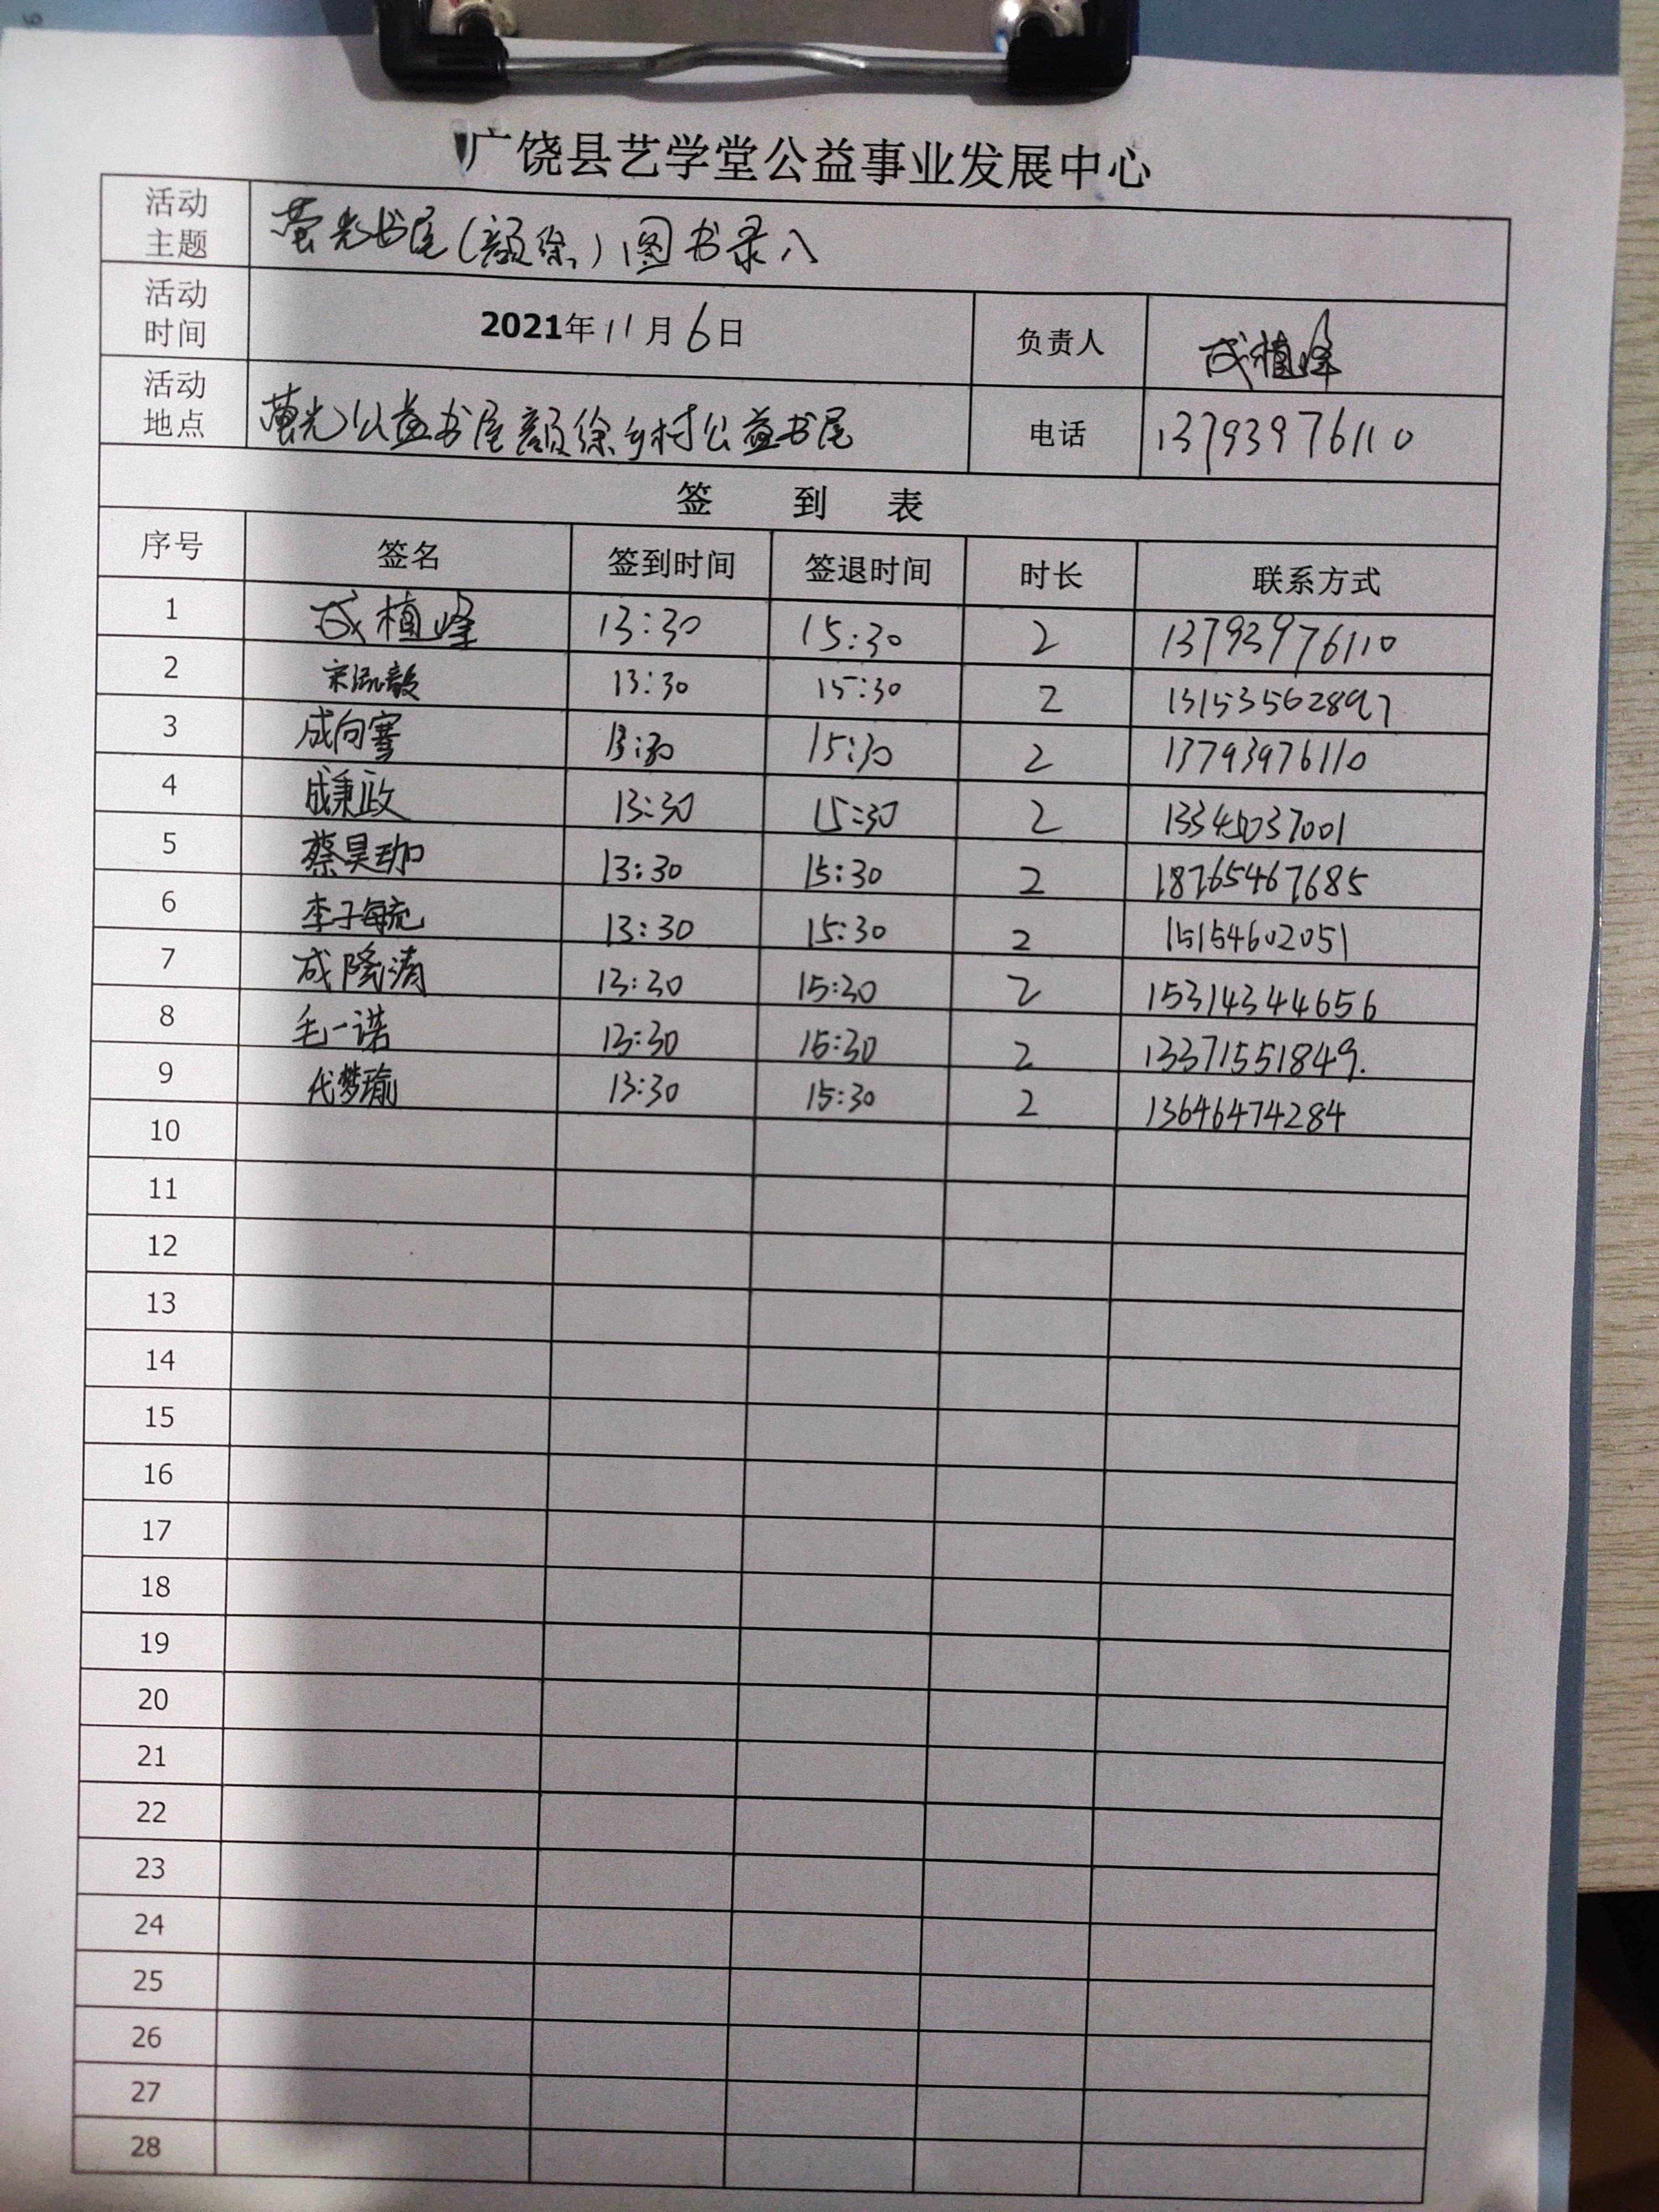 广饶县艺学堂公益事业发展中心
活动主题 萤光书屋(颜徐)图书录入
活动时间 2021年11月6日 负责人 成植峰
活动地点 萤光公益书屋颜徐乡村公益书屋 电话 13793976110
签 到 表
序号 签名 签到时间 签退时间 时长 联系方式
1 成植峰 13:30 15:30 2 13793976110
2 13:30 15:30 2 13153562897
3 成向骞 13:30 15:30 2 13793976110
4 成秉政 13:30 15:30 2
5 蔡昊珈 13:30 15:30 2 18765467685
6 13:30 15:30 2 15154602051
7 成隆清 13:30 15:30 2 15314344656
8 毛一诺 13:30 15:30 2 13371551849.
9 代梦瑜 13:30 15:30 2 13646474284
10
11
12
13
14
15
16
17
18
19
20
21
22
23
24
25
26
27
28